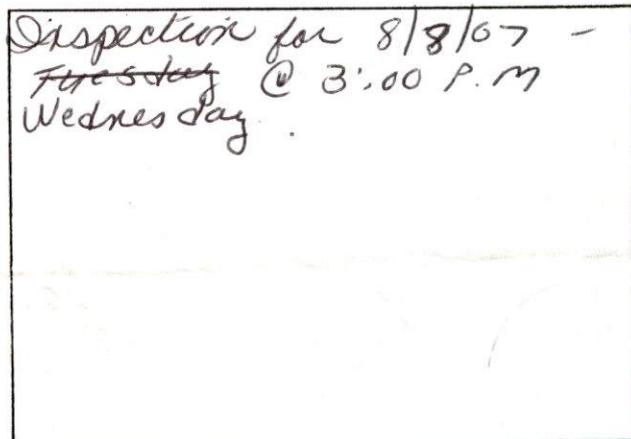 Inspection for 8/8/07 -
Tuesday @ 3:00 P.M
Wednesday.